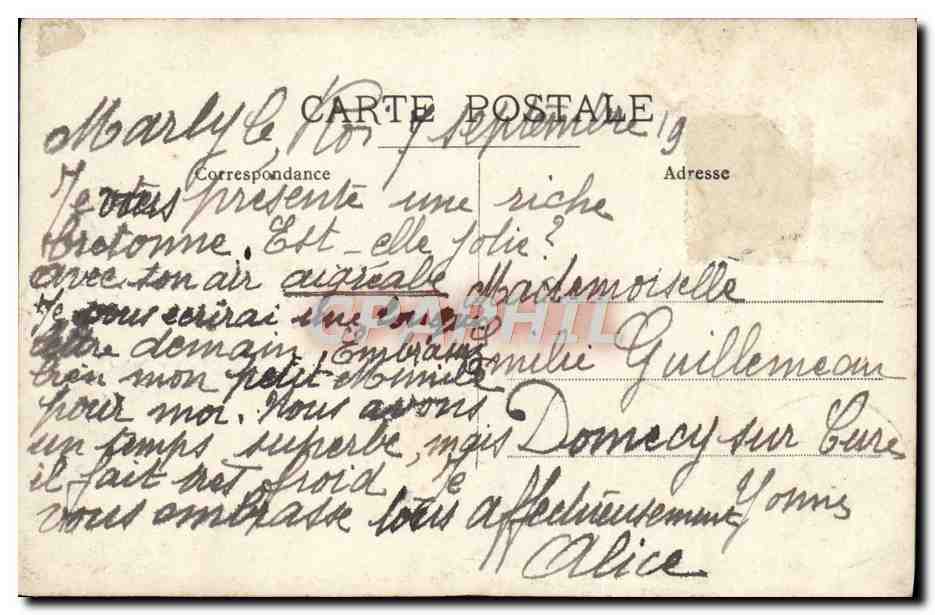 CARTE POSTALE
Marly le Roi 7 septembre 19
Correspondance
Je vous présente une riche
bretonne. Est-elle jolie?
avec son air aigréable
Je vous ecrirai une longue
lettre demain, Embrasse
bien mon petit Mimile
pour moi. Nous avons
un temps superbe, mais
il fait très froid Je
vous embrasse tous affectueusement
Alice
Adresse
Mademoiselle
Emilie Guillemeau
Domecy sur Cure
Yonne
CPAPHIL